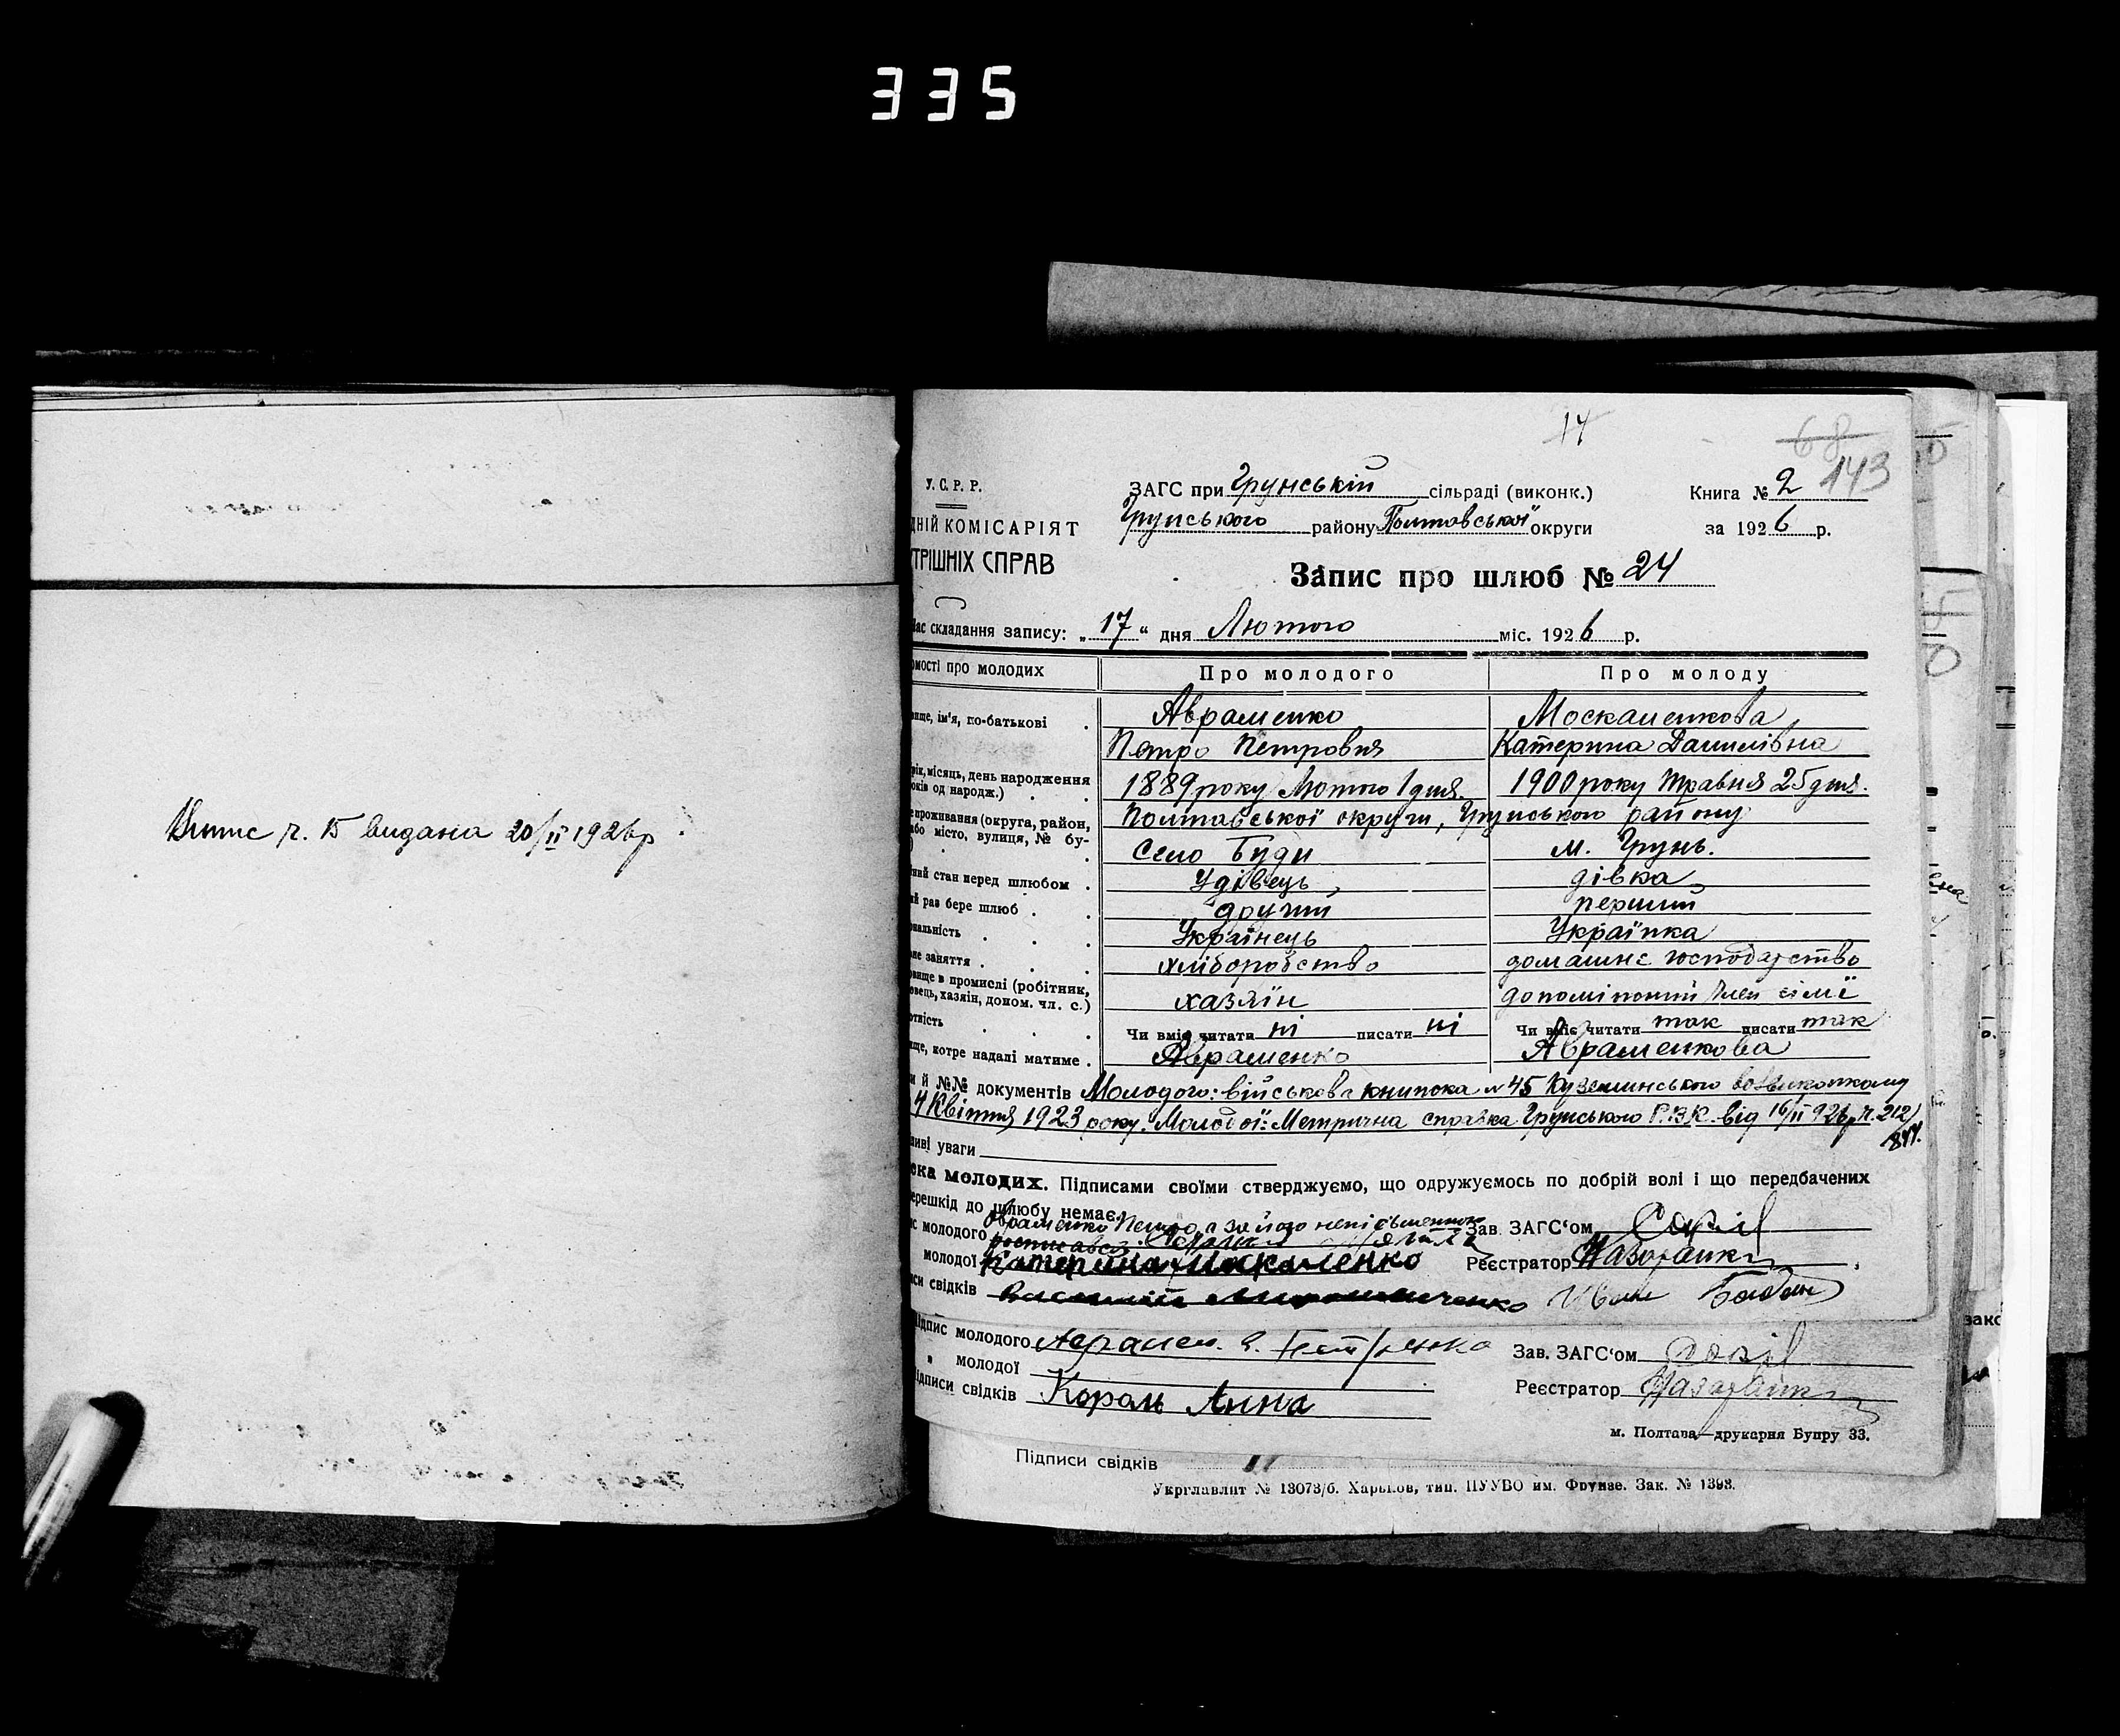 335
Випис ч. 15 видана 20/II 1926 р
14
68
143
У. С. Р. Р.
ДНІЙ КОМІСАРІЯТ
ТРІШНІХ СПРАВ
ЗАГС при Грунській сільраді (виконк.)
Грунського району Полтавської округи
Книга № 2
за 1926 р.
Запис про шлюб № 24
Час складання запису: „17“ дня Лютого міс. 1926 р.
омості про молодих
Про молодого
Про молоду
вище, ім'я, по-батькові
Авраменко
Москаленкова
Петро Петровия
Катерина Данилівна
рік, місяць, день народження
років од народж.)
1889 року Лютого 1 дня.
1900 року Травня 25 дня.
е проживання (округа, район,
або місто, вулиця, № бу-
Полтавської округи, Грунського району
Село Буди
м. Грунь.
ний стан перед шлюбом
Удівець,
дівка,
ий раз бере шлюб
другий
перший
ональність
Українець
Українка
не заняття
хліборобство
домашнє господарство
овище в промислі (робітник,
овець, хазяїн, допом. чл. с.)
хазяїн
допоміжний член сімї
отність
Чи вміє читати ні писати ні
Чи вміє читати так писати так
ище, котре надалі матиме
Авраменко
Авраменкова
и й №№ документів Молодого: військова книжка № 45 Куземинського
4 Квітня 1923 року. Молодої: Метрична справка Грунського Р.В.К. від 16/II 926 р ч. 212/
844.
ливі уваги
ска молодих. Підписами своїми стверджуємо, що одружуємось по добрій волі і що передбачених
ерешкід до шлюбу немає.
с молодого Авраменко Петро а за його неписьменного
росписався
Зав. ЗАГС'ом
молодої Катерина Москаленко
Реєстратор
иси свідків Василій Мирошниченко Иван Бабак
Підпис молодого
Зав. ЗАГС'ом
„ молодої
Реєстратор
Підписи свідків Король Анна
м. Полтава—друкарня Бупру 33.
Підписи свідків
Укрглавлит № 13073/б. Харьков, тип. ПУУВО им. Фрунзе. Зак. № 1393.